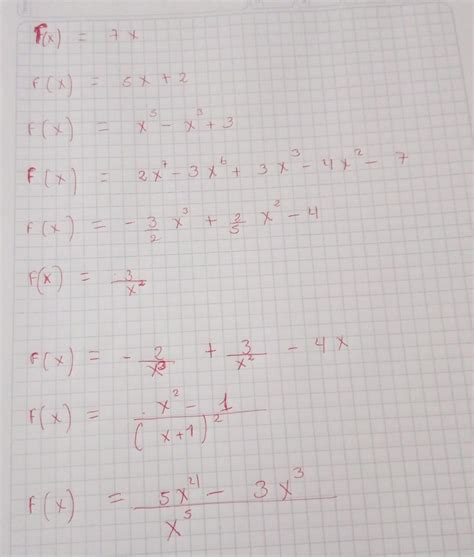 F(x) = 7x
F(x) = 5x + 2
F(x) = x^5 - x^3 + 3
F(x) = 2x^7 - 3x^6 + 3x^3 - 4x^2 - 7
F(x) = - 3/2 x^3 + 2/5 x^2 - 4
F(x) = 3/x^2
F(x) = - 2/x^3 + 3/x^2 - 4x
F(x) = (x^2 - 1)/(x+1)^2
F(x) = (5x^4 - 3x^3)/x^5